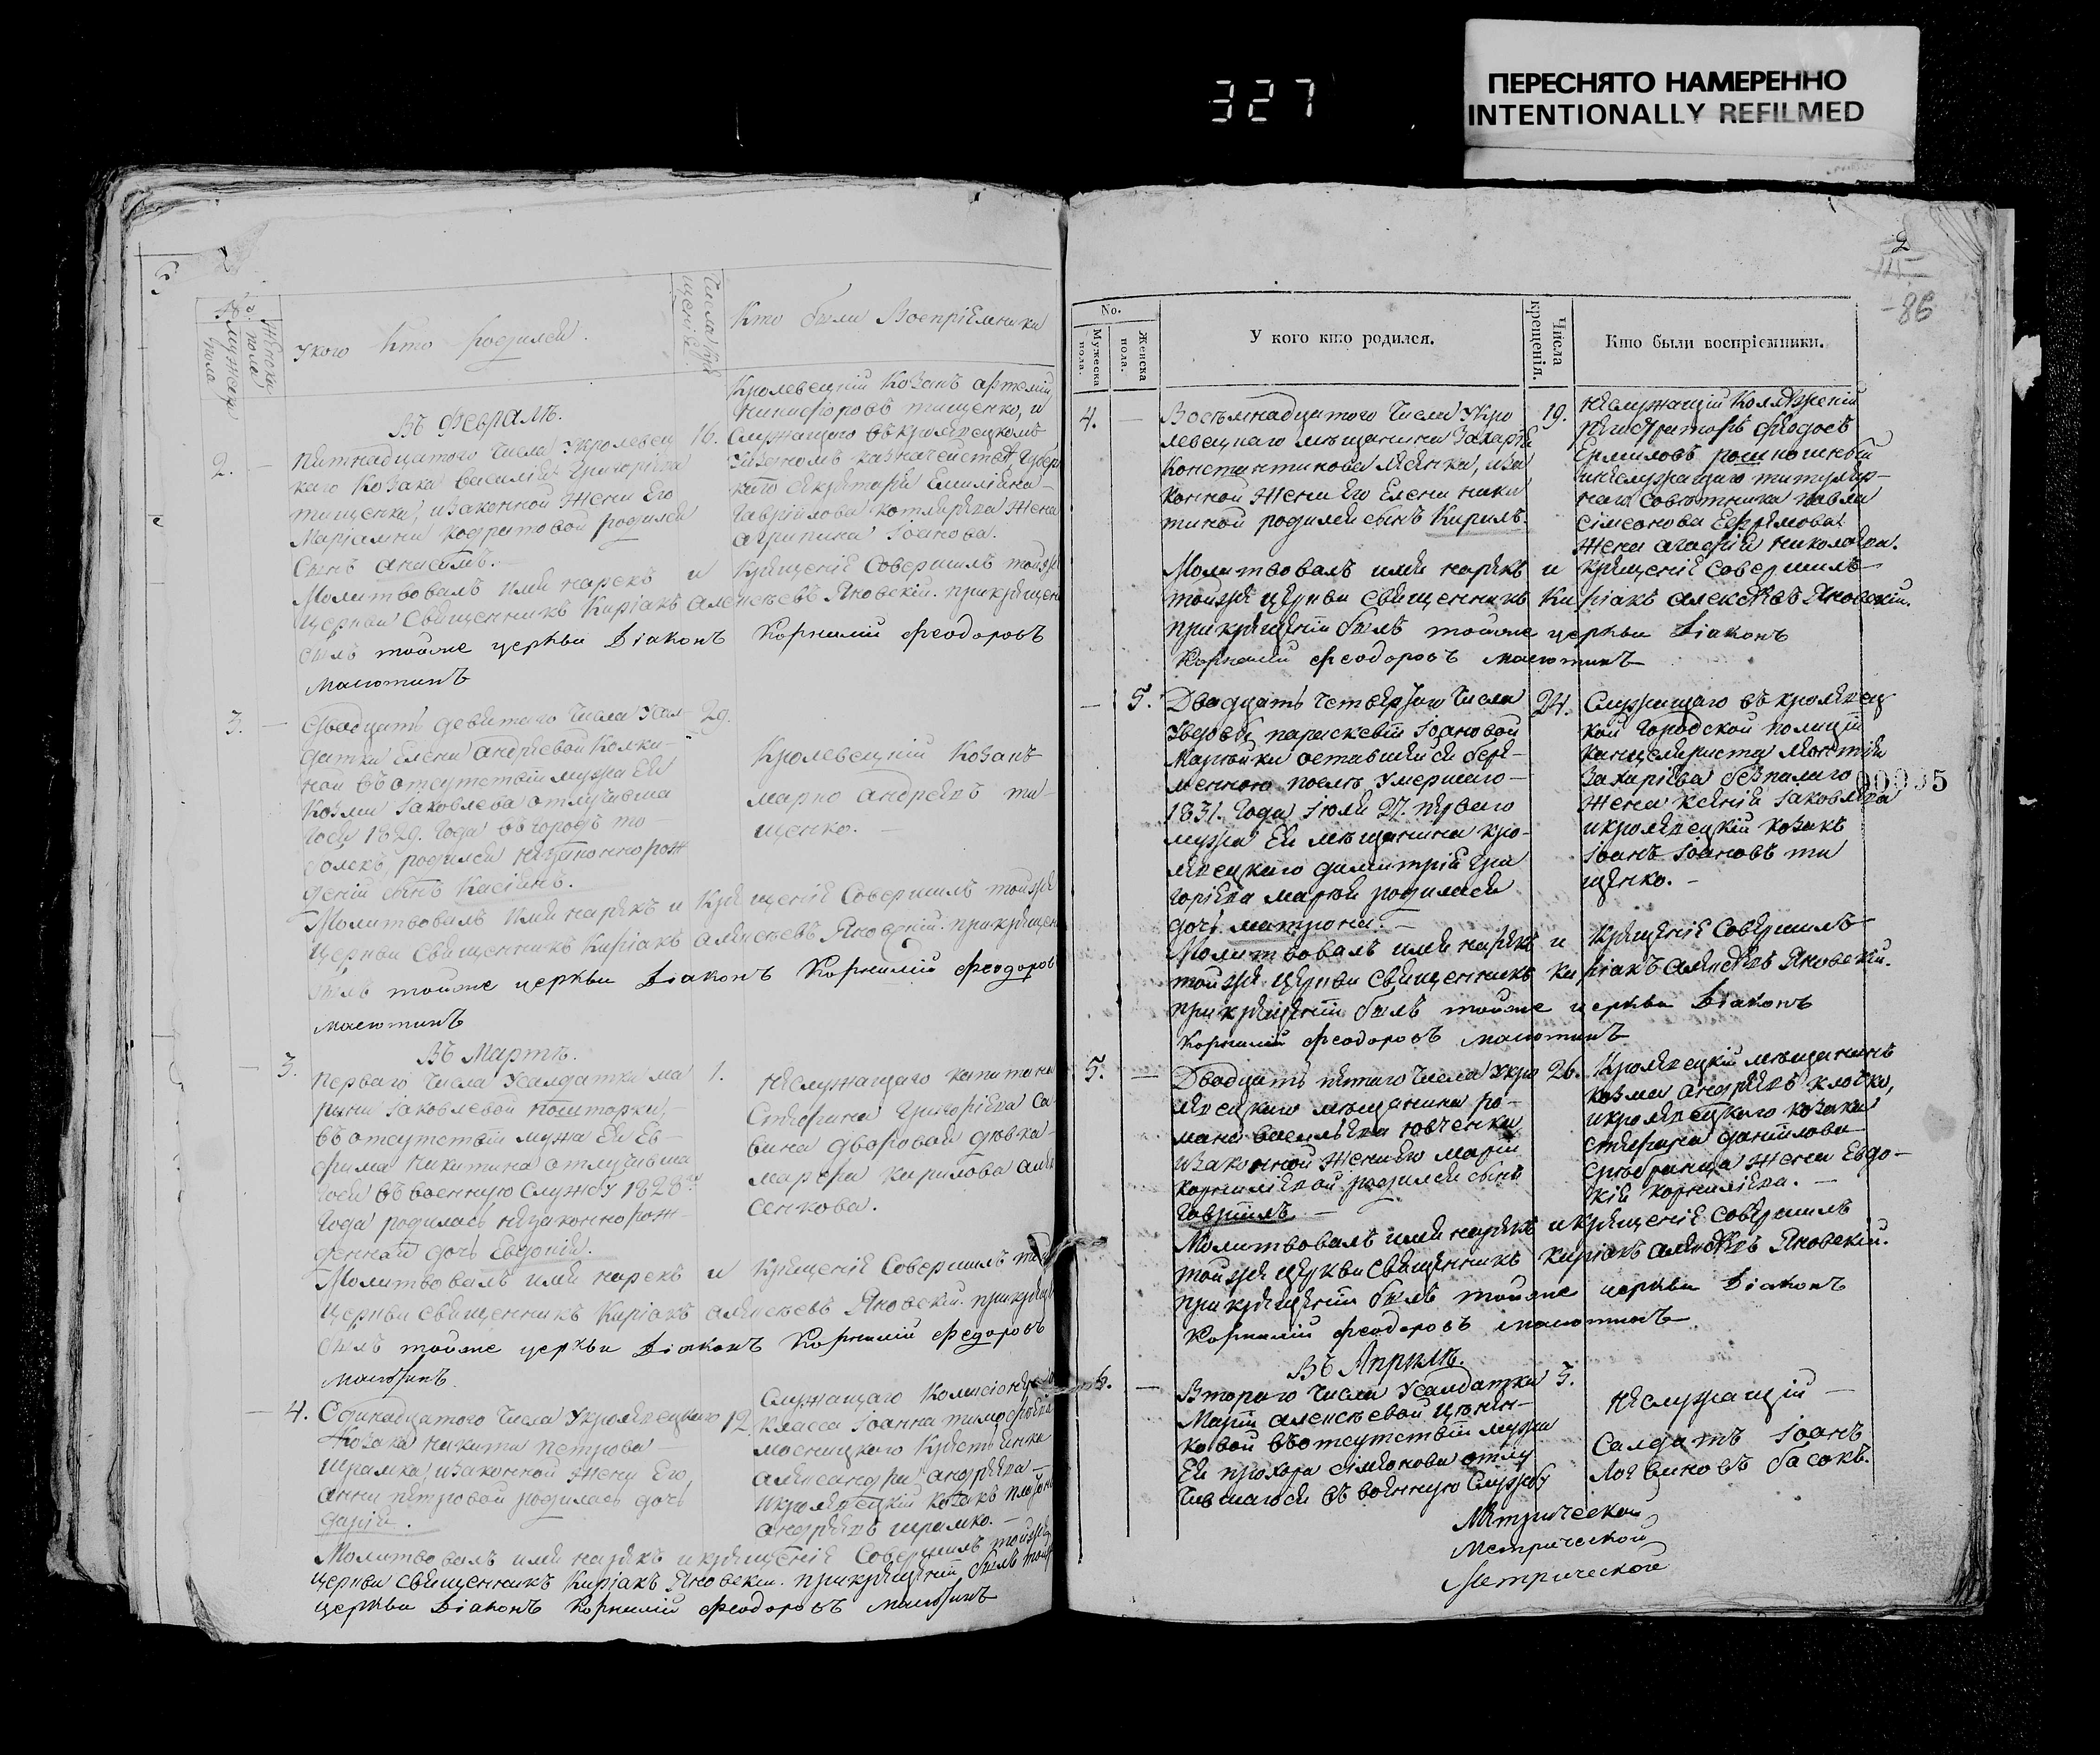 327
ПЕРЕСНЯТО НАМЕРЕННО
INTENTIONALLY REFILMED
У кого кто родился.
Числа крещенія
Кто были Воспріемники
Въ Февралѣ.
2. — Пятнадцатаго Числа Укролевец
каго Козака Василія Григоріева
тищенка, изаконной Жены Его
Маріамны родился
Сынъ Анисимъ.
16.
Кролевецкій Козакъ Артемій
Никифоровъ тищенко, и
Служащаго въ кролевецкомъ
Уѣздномъ казначействѣ Губер
каго секретаря Емиліана
Гавріилова Жена
Агрипина Іоанова.
Молитвовалъ имя нарекъ и Крещеніе Совершилъ тойже
Церкви Священникъ Киріакъ Алексѣевъ Яновскій. прикрещен
былъ тойже церкви Діаконъ Корнилій Феодоровъ
Масютинъ
3. — Двадцать девятаго Числа Усал
датки Елены Андреевой Колки
ной въ отсутствіи мужа Ея
Козмы Іаковлева отлучивша
гося 1829. Года въ городъ то
болскъ, родился незаконнорож
деній сынъ Касіянъ.
29.
Кролевецкій Козакъ
Марко Андреевъ ти
щенко. —
Молитвовалъ имя нарекъ и Крещеніе Совершилъ тойже
Церкви Священникъ Киріакъ Алексѣевъ Яновскій. прикрещен
былъ тойже церкви Діаконъ Корнилій Феодоров
Масютинъ
Въ Мартѣ.
— 3. перваго Числа Усалдатки Ма
рины Іаковлевой
въ отсутствіи мужа Ея Ев
фима Никитина отлучивша
гося въ военную Службу 1828го
Года родилась незаконнорож
денная дочь Евдокія.
1.
Неслужащаго капитана
Стефана Григоріева Са
вича дворовая дѣвка
Марфа Кирилова Але
сенкова.
Молитвовалъ имя нарекъ и Крещеніе Совершилъ той
Церкви Священникъ Киріакъ Алексѣевъ Яновскій. прикрещ
былъ тойже церкви Діаконъ Корнилій Федоровъ
Масютинъ
— 4. Одинадцатаго Числа Укролевецкаго
Козака Никиты Петрова
Шрамка, изаконной Жены Его,
Анны Петровой родилась дочь
Дарія.
12.
Служащаго
Класса Іоанна Тимофеева
Александра Андреева
и кролевецкій козакъ
Андреевъ шрамко. —
Молитвовалъ имя нарекъ и крещеніе Совершилъ тойже
Церкви Священникъ Киріакъ Яновскій. прикрещеніи былъ той
церкви Діаконъ Корнилій Феодоровъ Масютинъ
2
86
No.
Мужеска пола.
Женска пола.
У кого кто родился.
Числа крещенія.
Кто были воспріемники.
4. — Восѣмнадцатого Числа Укро
левецкаго мѣщанина Захарія
Константинова иза
конной Жены Его Елены Ники
тиной родился сынъ Кирилъ.
19.
Неслужащій Колежскій
Регистраторъ Феодосъ
Ермиловъ
и неслужащаго титуляр
наго Совѣтника Павла
Сімеонова Ефремова
Жена Агафія Николаева.
Молитвовалъ имя нарекъ и крещеніе Совершилъ
тойже церкви Священникъ Киріакъ Алексѣевъ Яновскій.
прикрещеніи былъ тойже церкви Діаконъ
Корнилій Феодоровъ Масютинъ
— 5. Двадцать Четвертаго Числа
Увдовы Параскевіи Іоановой
оставшейся бере
менною послѣ Умершаго
1831. Года Іюля 27. перваго
мужа Ея мѣщанина кро
левецкаго Димитрія Гри
горіева родилася
дочь матрона. —
24.
Служащаго въ кролевец
кой Городской полиціи
канцеляриста Леонтія
Захаріева безпалаго
Жена Ксенія Іаковлева
и кролевецкій козакъ
Іоанъ Іоановъ ти
щенко. —
00095
Молитвовалъ имя нарекъ и Крещеніе Совершилъ
тойже церкви Священникъ Киріакъ Алексѣевъ Яновскій.
прикрещеніи былъ тойже церкви Діаконъ
Корнилій Феодоровъ Масютинъ
5. — Двадцать пятаго Числа Укро
левецкаго мѣщанина Ро
мана Василіева Ювченка
изаконной Жены Его Маріи
Корниліевой родился сынъ
Гавріилъ. —
26.
Кролевецкій мѣщанинъ
Козма Андреевъ Клочко,
и кролевецкаго козака
Стефана Даніилова
Жена Евдо
кія Корниліева. —
Молитвовалъ имя нарекъ и крещеніе Совершилъ
тойже церкви Священникъ Киріакъ Алексѣевъ Яновскій.
прикрещеніи былъ тойже церкви Діаконъ
Корнилій Феодоровъ Масютинъ
Въ Априлѣ.
6. — Втораго Числа Усалдатки
Маріи Алексѣевой
ковой въ отсутствіи мужа
Ея Прохора Сімеонова отлу
чившагося въ военную Службу
3.
Неслужащій —
Салдатъ Іоанъ
Логвиновъ басокъ.
Метрической
Метрической
Метрической